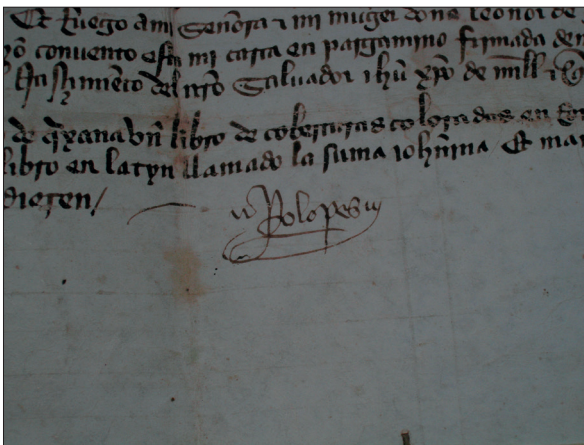 Et Ruego a mi Señora e mi muger doña leonor de
convento esta mi carta en pargamino firmada de
Nasçimiento del nro Salvador ihu xpo de mill e
de q̃xana vn libro de coberturas coloradas en
libro en latyn llamado la suma ioh̃nina Et
dieren /
Po lopes